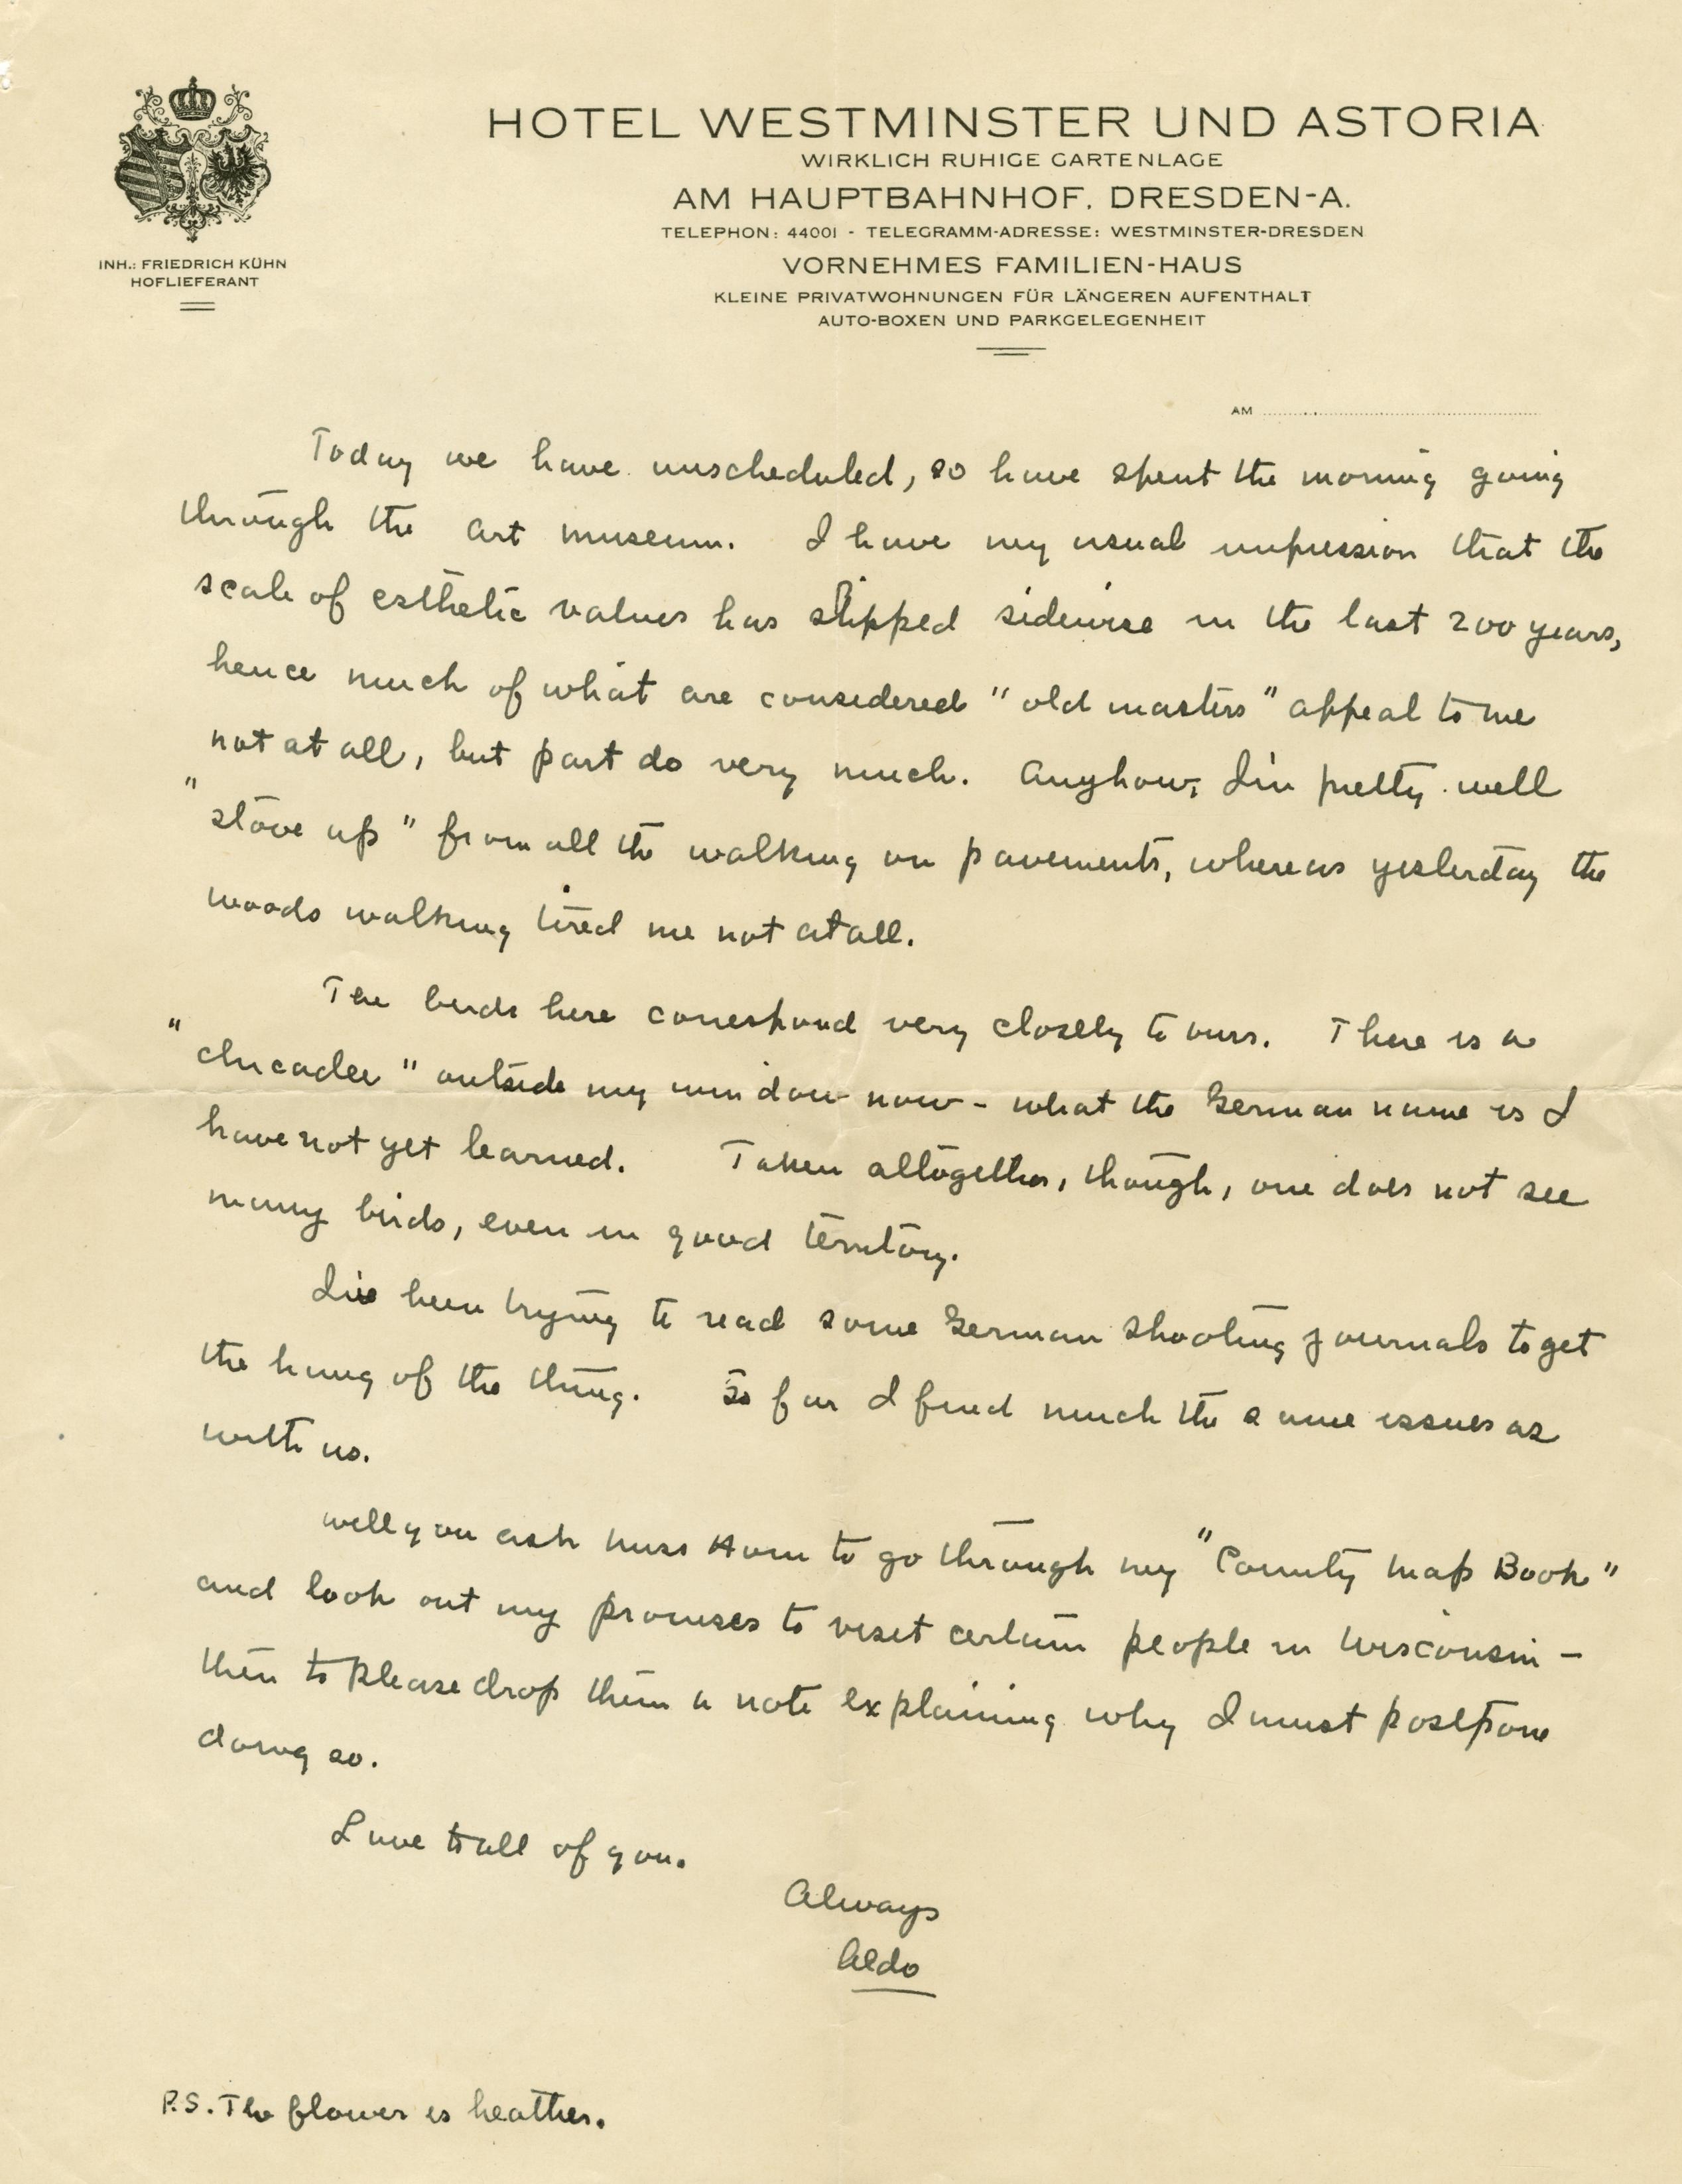 HOTEL WESTMINSTER UND ASTORIA
WIRKLICH RUHIGE GARTENLAGE
AM HAUPTBAHNHOF, DRESDEN-A.
TELEPHON: 44001 - TELEGRAMM-ADRESSE: WESTMINSTER-DRESDEN
VORNEHMES FAMILIEN-HAUS
KLEINE PRIVATWOHNUNGEN FÜR LÄNGEREN AUFENTHALT
AUTO-BOXEN UND PARKGELEGENHEIT
INH.: FRIEDRICH KÜHN
HOFLIEFERANT
AM
Today we have unscheduled, so have spent the morning going
through the art museum. I have my usual impression that the
scale of esthetic values has slipped sidewise in the last 200 years,
hence much of what are considered "old masters" appeal to me
not at all, but part do very much. Anyhow, I'm pretty well
"stove up" from all the walking on pavements, whereas yesterday the
woods walking tired me not at all.
The birds here correspond very closely to ours. There is a
"chicadee" outside my window now - what the German name is I
have not yet learned. Taken altogether, though, one does not see
many birds, even in good territory.
I've been trying to read some German shooting journals to get
the hang of the thing. So far I find much the same issues as
with us.
Will you ask Miss Horn to go through my "County Map Book"
and look out my promises to visit certain people in Wisconsin -
then to please drop them a note explaining why I must postpone
doing so.
Love to all of you.
Always
Aldo
P.S. The flower is heather.